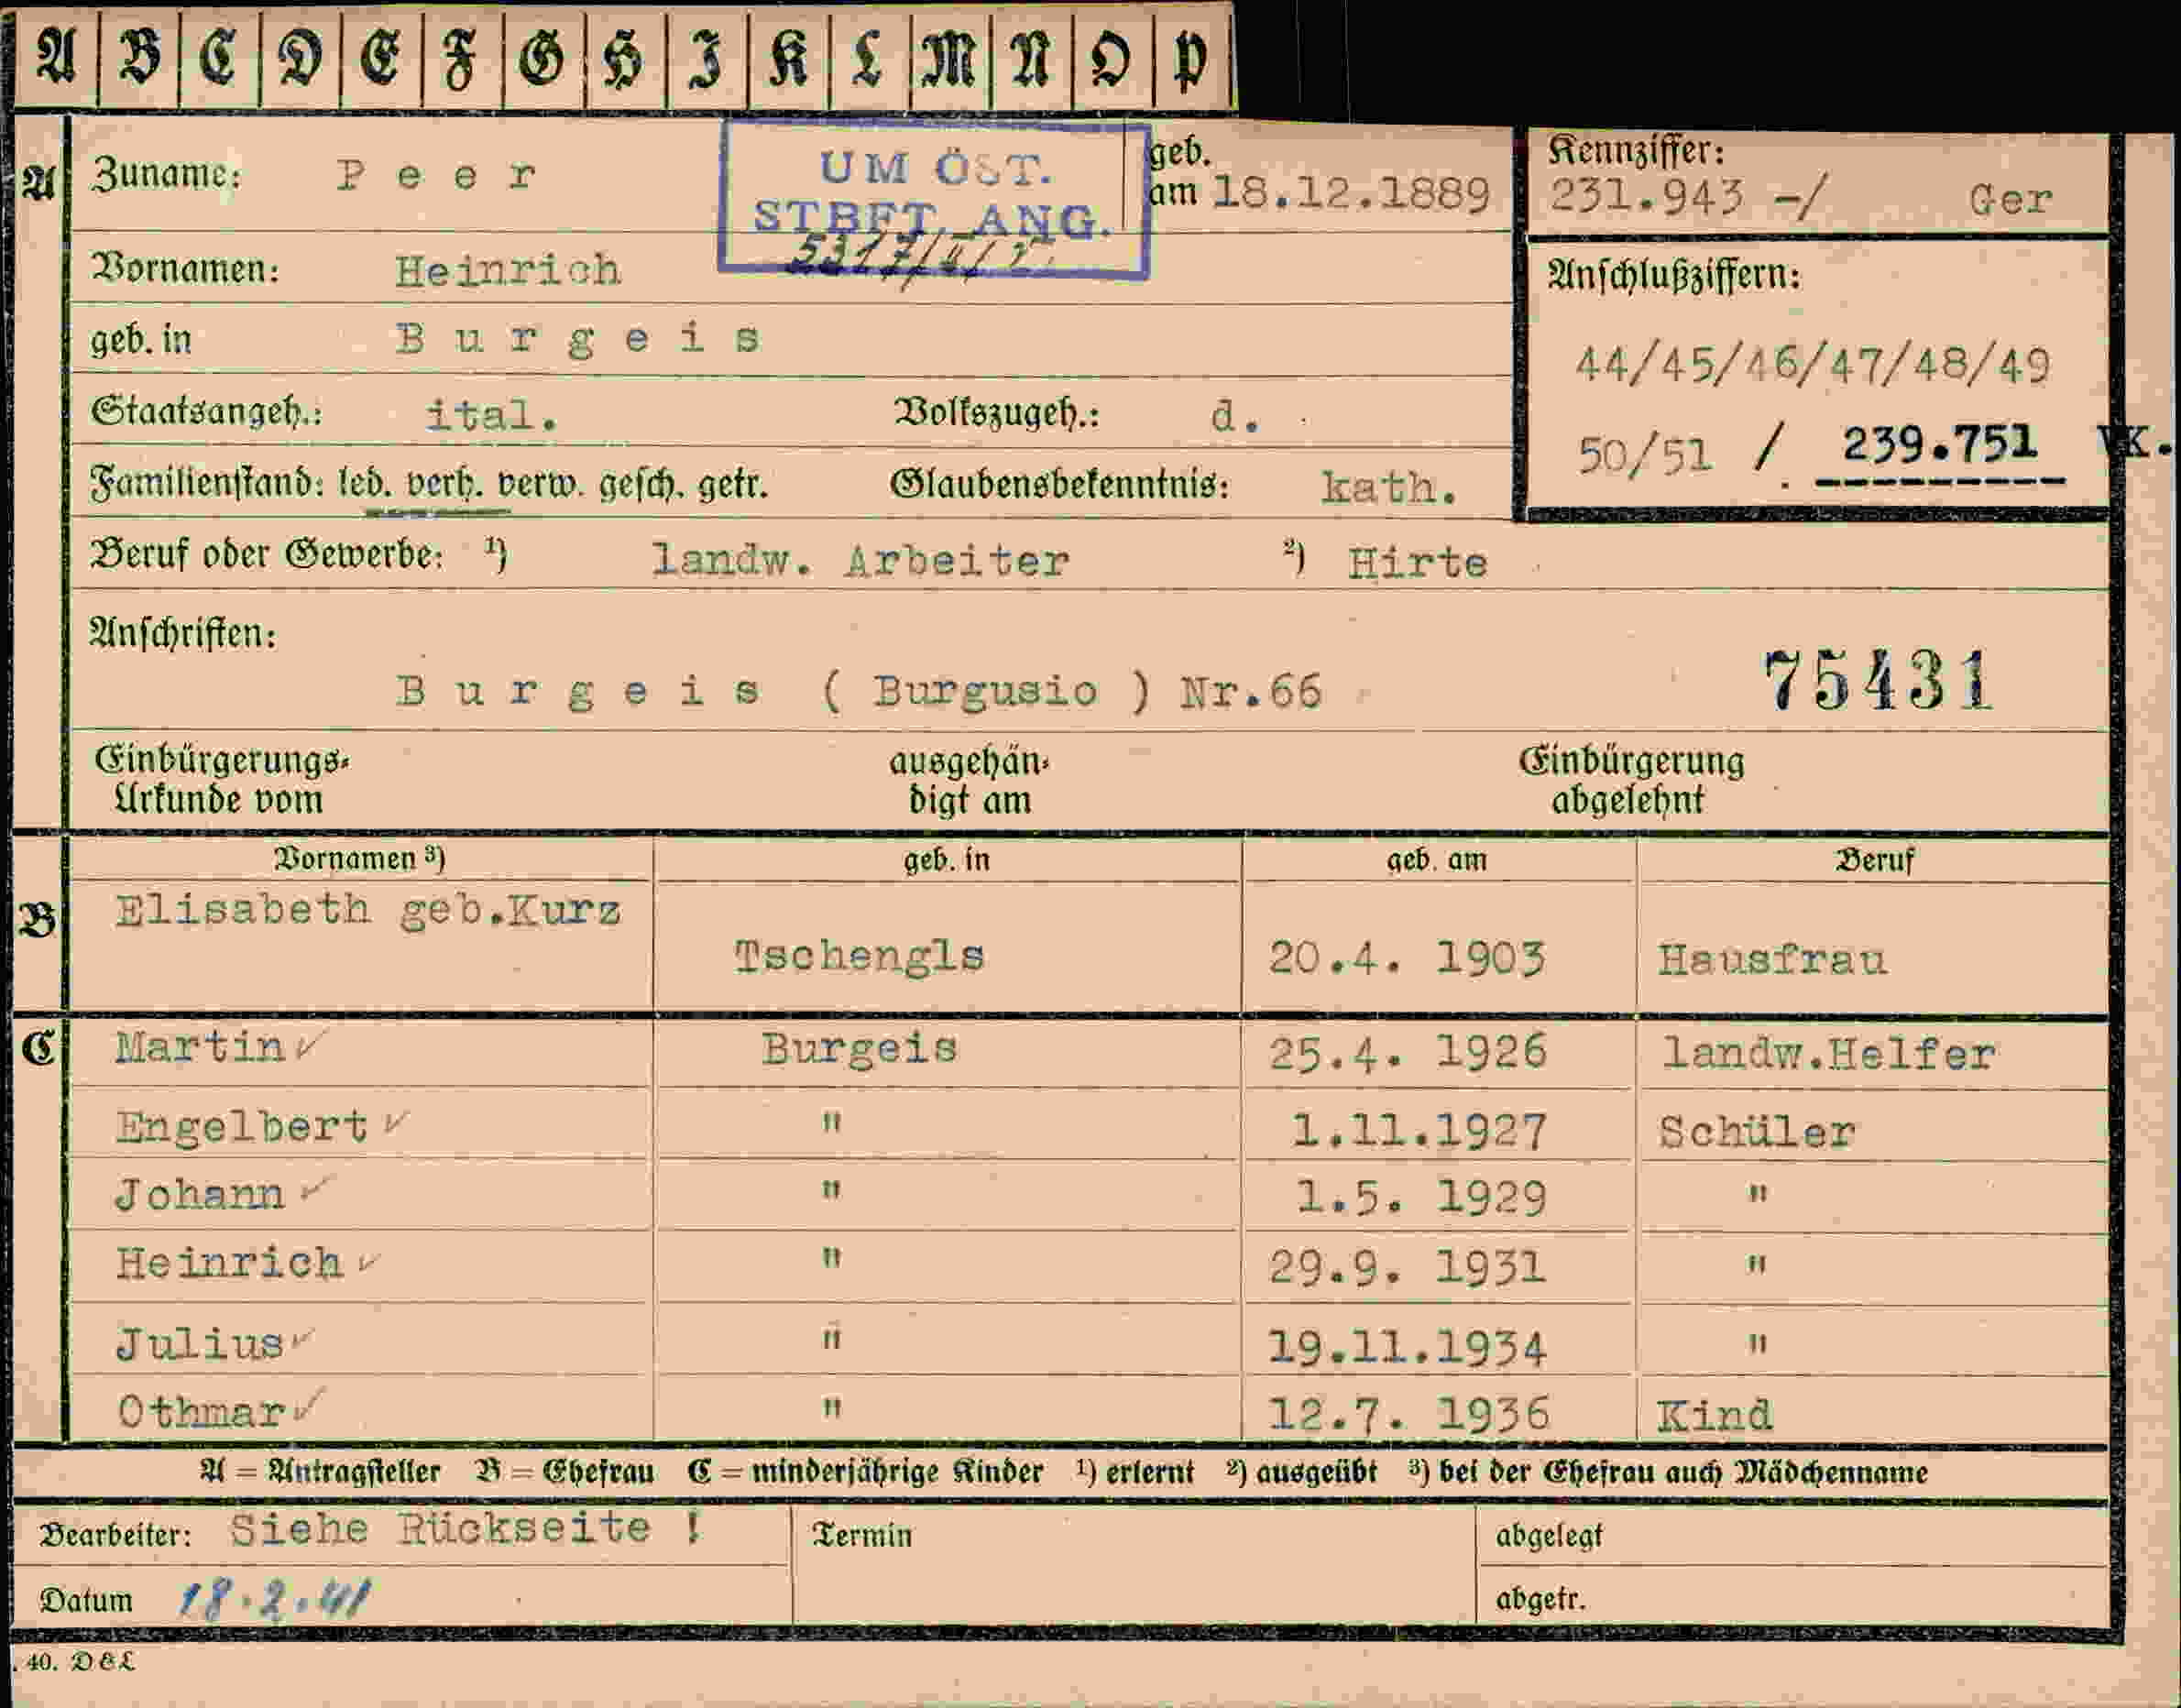 A B C D E F G H I K L M N O P
A Zuname: Peer
UM ÖST.
STBFT. ANG.
geb.
am 18.12.1889
Kennziffer:
231.943 -/ Ger
Vornamen: Heinrich
Anschlußziffern:
geb. in Burgeis
44/45/46/47/48/49
Staatsangeh.: ital. Volkszugeh.: d.
50/51 / 239.751 VK.
Familienstand: led. verh. verw. gesch. getr. Glaubensbekenntnis: kath.
Beruf oder Gewerbe: ¹) landw. Arbeiter ²) Hirte
Anschriften:
Burgeis ( Burgusio ) Nr.66
75431
Einbürgerungs-
Urkunde vom
ausgehän-
digt am
Einbürgerung
abgelehnt
Vornamen ³) geb. in geb. am Beruf
B Elisabeth geb.Kurz
Tschengls 20.4. 1903 Hausfrau
C Martin ✓ Burgeis 25.4. 1926 landw.Helfer
Engelbert ✓ " 1.11.1927 Schüler
Johann ✓ " 1.5. 1929 "
Heinrich ✓ " 29.9. 1931 "
Julius ✓ " 19.11.1934 "
Othmar ✓ " 12.7. 1936 Kind
A = Antragsteller B = Ehefrau C = minderjährige Kinder ¹) erlernt ²) ausgeübt ³) bei der Ehefrau auch Mädchenname
Bearbeiter: Siehe Rückseite ! Termin abgelegt
Datum 18.2.41 abgetr.
. 40. D & L